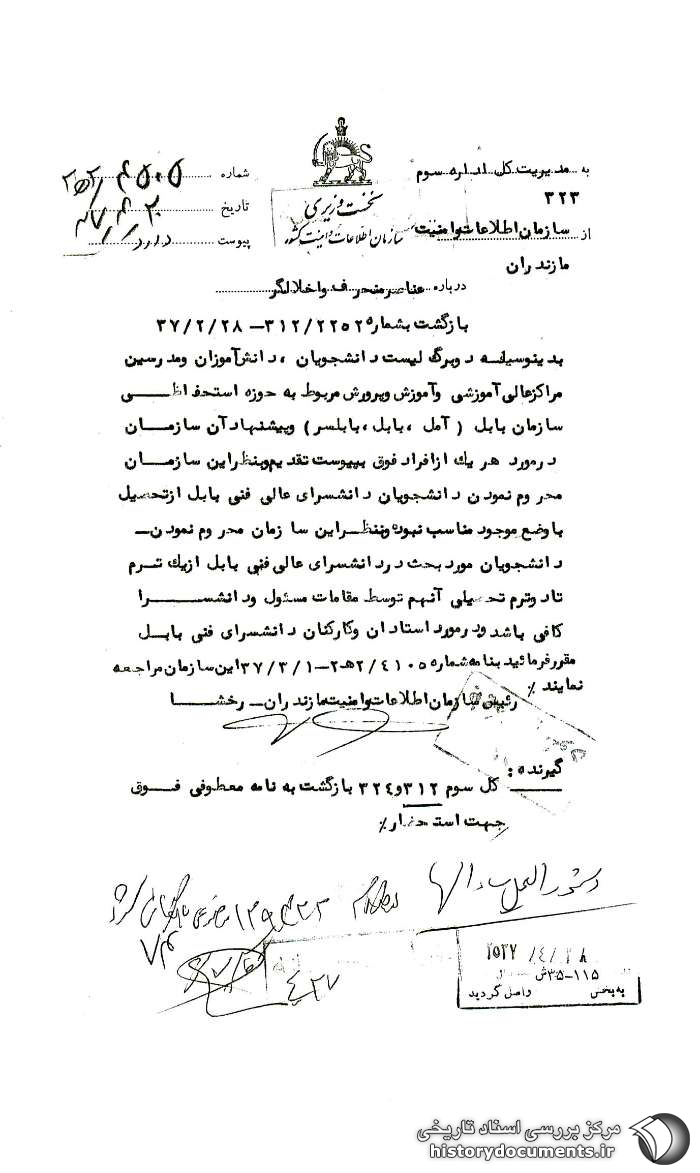 به مدیریت کل اداره سوم
۳۲۳
از سازمان اطلاعات و امنیت
مازندران
نخست وزیری
سازمان اطلاعات و امنیت کشور
شماره
تاریخ
پیوست دارد
درباره عناصر منحرف و اخلالگر
بازگشت بشماره ۳۱۲/۲۲۵۲ - ۳۷/۲/۲۸
بدینوسیله دوبرگ لیست دانشجویان ، دانش‌آموزان ومدرسین
مراکزعالی آموزشی وآموزش وپرورش مربوط به حوزه استحفاظی
سازمان بابل ( آمل ، بابل ، بابلسر ) وپیشنهاد آن سازمان
درمورد هر یك ازافراد فوق بپیوست تقدیم وبنظر این سازمان
محروم نمودن دانشجویان دانشسرای عالی فنی بابل ازتحصیل
باوضع موجود مناسب نبوده وبنظر این سازمان محروم نمودن
دانشجویان مورد بحث دردانشسرای عالی فنی بابل ازیك ترم
تادوترم تحصیلی آنهم توسط مقامات مسئول ودانشسرا
کافی باشد ودرمورد استادان وکارکنان دانشسرای فنی بابل
مقررفرمائید بنامه شماره ۲/۴۱۰۵هـ۲ - ۳۷/۳/۱ این سازمان مراجعه
نمایند ٪
رئیس سازمان اطلاعات وامنیت مازندران - رخشا
گیرنده :
کل سوم ۳۱۲ و ۳۲۴ بازگشت به نامه معطوفی فوق
جهت استحضار ٪
۲۵۳۷/۴/۲۸
۱۱۵-۳۵ش
به بخش واصل گردید
۴۲۷
مرکز بررسی اسناد تاریخی
historydocuments.ir